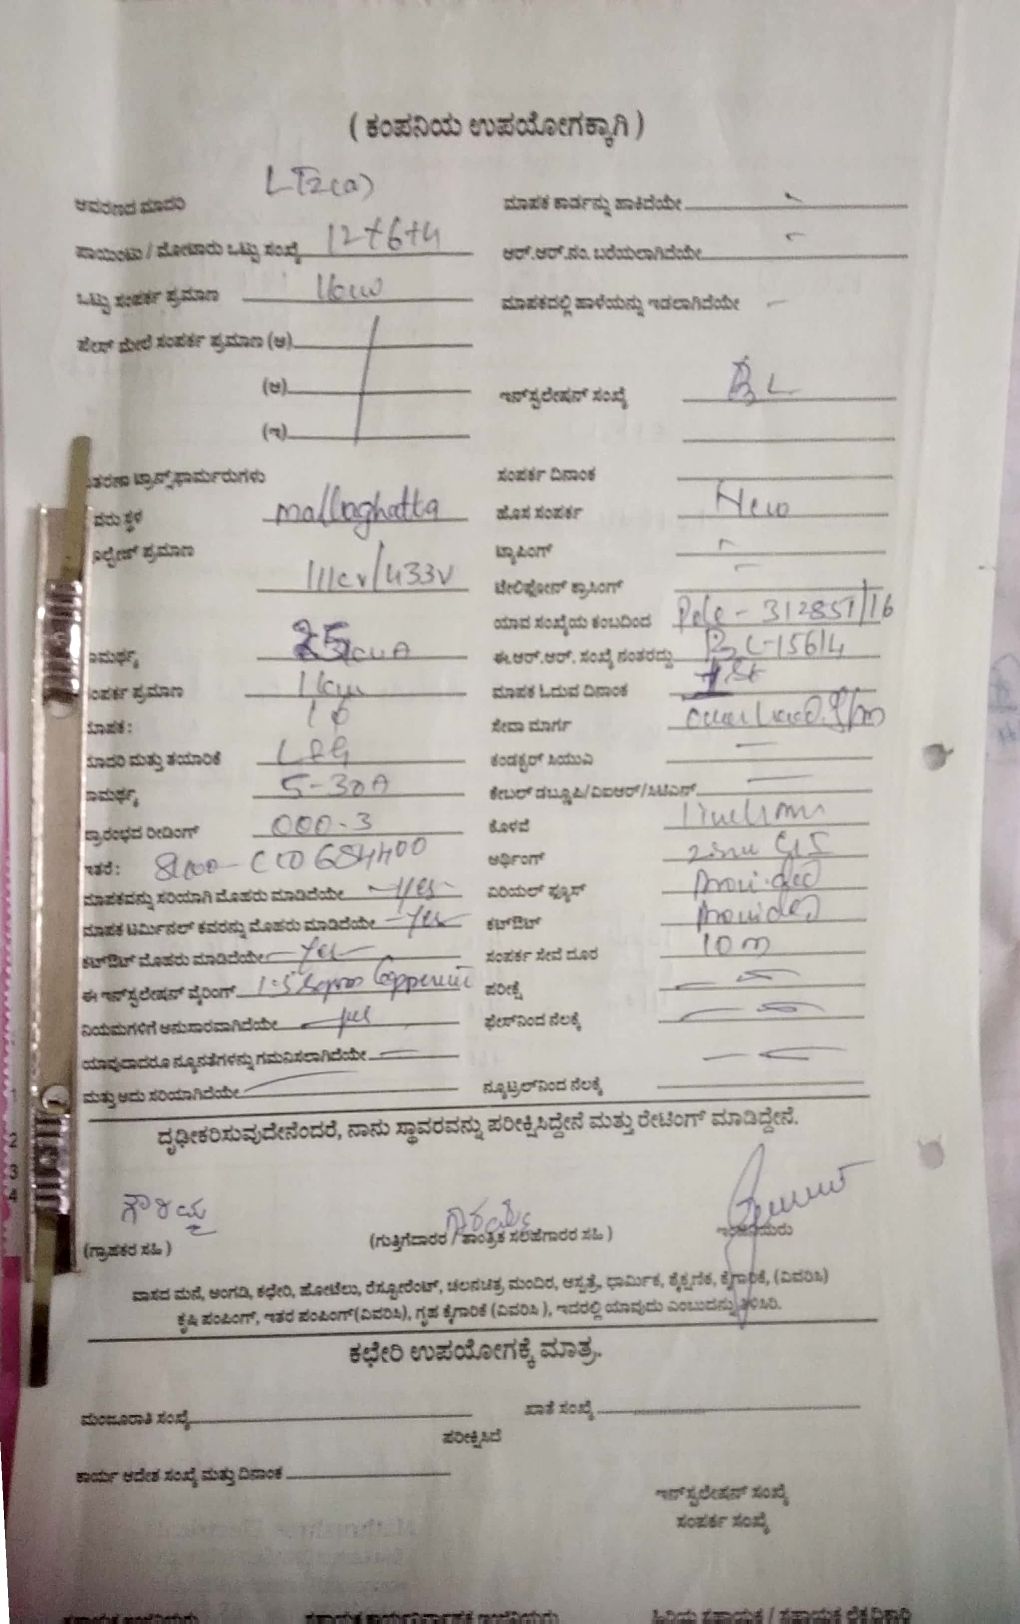 ( ಕಂಪನಿಯ ಉಪಯೋಗಕ್ಕಾಗಿ )
ಆವರಣದ ಮಾದರಿ LT2(a) ಮಾಪಕ ಕಾರ್ಡನ್ನು ಹಾಕಿದೆಯೇ
ಪಾಯಿಂಟು / ಮೋಟಾರು ಒಟ್ಟು ಸಂಖ್ಯೆ 12+6+4 ಆರ್.ಆರ್.ನಂ. ಬರೆಯಲಾಗಿದೆಯೇ
ಒಟ್ಟು ಸಂಪರ್ಕ ಪ್ರಮಾಣ 1kw ಮಾಪಕದಲ್ಲಿ ಹಾಳೆಯನ್ನು ಇಡಲಾಗಿದೆಯೇ
ಫೇಸ್ ಮೇಲೆ ಸಂಪರ್ಕ ಪ್ರಮಾಣ (ಅ)
(ಆ) ಇನ್‌ಸ್ಟಲೇಷನ್ ಸಂಖ್ಯೆ BL
(ಇ)
ತರಣಾ ಟ್ರಾನ್ಸ್‌ಫಾರ್ಮರುಗಳು ಸಂಪರ್ಕ ದಿನಾಂಕ
ವರು ಸ್ಥಳ mallaghatta ಹೊಸ ಸಂಪರ್ಕ New
ೋಲ್ಟೇಜ್ ಪ್ರಮಾಣ 11kv/433V ಟ್ಯಾಪಿಂಗ್
ಟೇಲಿಫೋನ್ ಕ್ರಾಸಿಂಗ್
ಯಾವ ಸಂಖ್ಯೆಯ ಕಂಬದಿಂದ Pole - 312851/16
ಾಮರ್ಥ್ಯ 25 KVA ಈ.ಆರ್.ಆರ್. ಸಂಖ್ಯೆ ನಂತರದ್ದು BL-15614
ಸಂಪರ್ಕ ಪ್ರಮಾಣ 1kw ಮಾಪಕ ಓದುವ ದಿನಾಂಕ 1st
ಮಾಪಕ: 1ϕ ಸೇವಾ ಮಾರ್ಗ over head s/m
ಮಾದರಿ ಮತ್ತು ತಯಾರಿಕೆ L&G ಕಂಡಕ್ಟರ್ ಸಿಯುಎ
ಾಮರ್ಥ್ಯ 5-30A ಕೇಬಲ್ ಡಬ್ಲೂಪಿ/ವಿಐಆರ್/ಸಿಟಿಎಸ್
ಪ್ರಾರಂಭದ ರೀಡಿಂಗ್ 000.3 ಕೊಳವೆ
ಇತರೆ: ಅರ್ಥಿಂಗ್
ಮಾಪಕವನ್ನು ಸರಿಯಾಗಿ ಮೊಹರು ಮಾಡಿದೆಯೇ yes ಏರಿಯಲ್ ಫ್ಯೂಸ್ provided
ಮಾಪಕ ಟರ್ಮಿನಲ್ ಕವರನ್ನು ಮೊಹರು ಮಾಡಿದೆಯೇ yes ಕಟ್‌ಔಟ್ provided
ಕಟ್‌ಔಟ್ ಮೊಹರು ಮಾಡಿದೆಯೇ yes ಸಂಪರ್ಕ ಸೇವೆ ದೂರ 10 m
ಈ ಇನ್‌ಸ್ಟಲೇಷನ್ ವೈರಿಂಗ್ 1.5 Sqmm Copper ಪರೀಕ್ಷೆ
ನಿಯಮಗಳಿಗೆ ಅನುಸಾರವಾಗಿದೆಯೇ yes ಫೇಸ್‌ನಿಂದ ನೆಲಕ್ಕೆ
ಯಾವುದಾದರೂ ನ್ಯೂನತೆಗಳನ್ನು ಗಮನಿಸಲಾಗಿದೆಯೇ
ಮತ್ತು ಅದು ಸರಿಯಾಗಿದೆಯೇ ನ್ಯೂಟ್ರಲ್‌ನಿಂದ ನೆಲಕ್ಕೆ
ದೃಢೀಕರಿಸುವುದೇನೆಂದರೆ, ನಾನು ಸ್ಥಾವರವನ್ನು ಪರೀಕ್ಷಿಸಿದ್ದೇನೆ ಮತ್ತು ರೇಟಿಂಗ್ ಮಾಡಿದ್ದೇನೆ.
ಗೌರಮ್ಮ
(ಗ್ರಾಹಕರ ಸಹಿ) (ಗುತ್ತಿಗೆದಾರರ / ತಾಂತ್ರಿಕ ಸಲಹೆಗಾರರ ಸಹಿ ) ಇಂಜಿನಿಯರು
ವಾಸದ ಮನೆ, ಅಂಗಡಿ, ಕಛೇರಿ, ಹೋಟೆಲು, ರೆಸ್ಟೋರೆಂಟ್, ಚಲನಚಿತ್ರ ಮಂದಿರ, ಆಸ್ಪತ್ರೆ, ಧಾರ್ಮಿಕ, ಶೈಕ್ಷಣಿಕ, ಕೈಗಾರಿಕೆ, (ವಿವರಿಸಿ)
ಕೃಷಿ ಪಂಪಿಂಗ್, ಇತರ ಪಂಪಿಂಗ್(ವಿವರಿಸಿ), ಗೃಹ ಕೈಗಾರಿಕೆ (ವಿವರಿಸಿ ), ಇದರಲ್ಲಿ ಯಾವುದು ಎಂಬುದನ್ನು ತಿಳಿಸಿರಿ.
ಕಛೇರಿ ಉಪಯೋಗಕ್ಕೆ ಮಾತ್ರ.
ಮಂಜೂರಾತಿ ಸಂಖ್ಯೆ ಖಾತೆ ಸಂಖ್ಯೆ
ಪರೀಕ್ಷಿಸಿದೆ
ಕಾರ್ಯ ಆದೇಶ ಸಂಖ್ಯೆ ಮತ್ತು ದಿನಾಂಕ
ಇನ್‌ಸ್ಟಲೇಷನ್ ಸಂಖ್ಯೆ
ಸಂಪರ್ಕ ಸಂಖ್ಯೆ